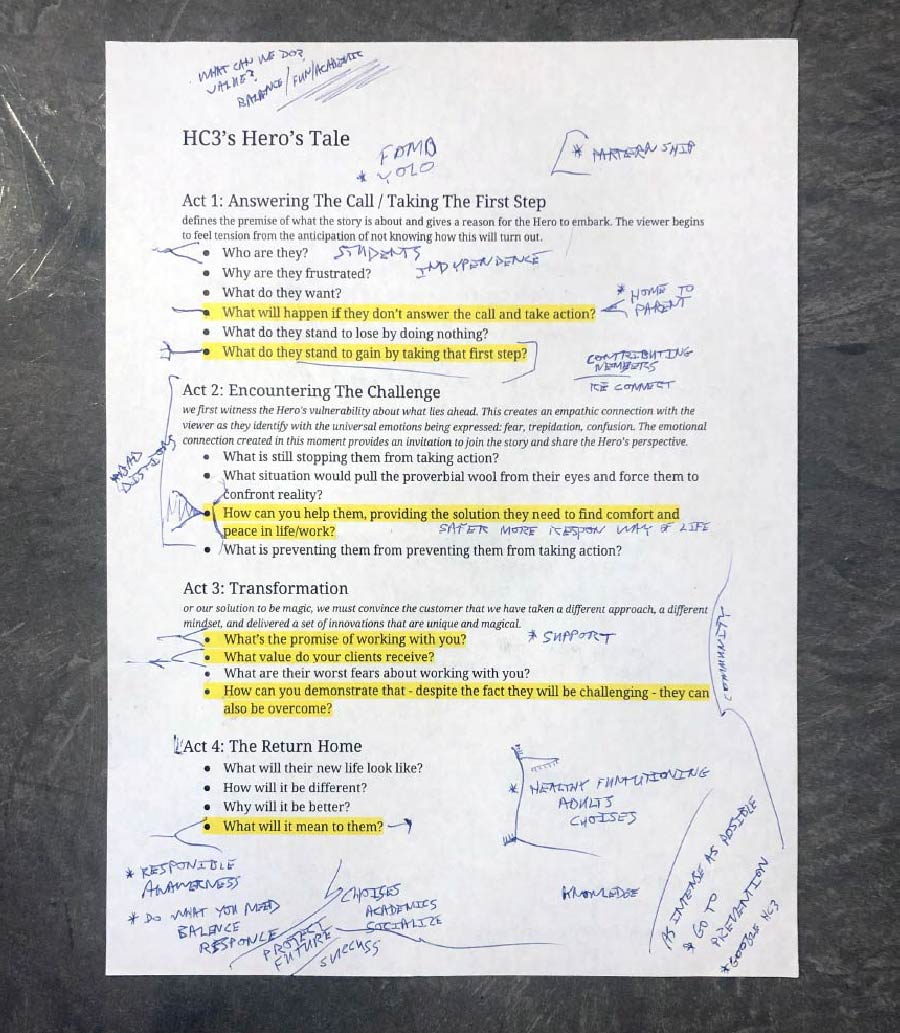 WHAT CAN WE DO?
VALUE?
BALANCE/FUN/ACADEMIC
HC3's Hero's Tale
FOMO
* YOLO
* PARTERNSHIP
Act 1: Answering The Call / Taking The First Step
defines the premise of what the story is about and gives a reason for the Hero to embark. The viewer begins
to feel tension from the anticipation of not knowing how this will turn out.
• Who are they? STUDENTS
• Why are they frustrated? INDYPENDENCE
• What do they want?
* HOME TO
PARENT
• What will happen if they don't answer the call and take action?
• What do they stand to lose by doing nothing?
• What do they stand to gain by taking that first step?
CONTRIBUTING
MEMBERS
RE CONNECT
Act 2: Encountering The Challenge
we first witness the Hero's vulnerability about what lies ahead. This creates an empathic connection with the
viewer as they identify with the universal emotions being expressed: fear, trepidation, confusion. The emotional
connection created in this moment provides an invitation to join the story and share the Hero's perspective.
• What is still stopping them from taking action?
• What situation would pull the proverbial wool from their eyes and force them to
confront reality?
• How can you help them, providing the solution they need to find comfort and
peace in life/work? SAFER MORE RESPON WAY OF LIFE
• What is preventing them from preventing them from taking action?
Act 3: Transformation
or our solution to be magic, we must convince the customer that we have taken a different approach, a different
mindset, and delivered a set of innovations that are unique and magical.
• What's the promise of working with you? * SUPPORT
• What value do your clients receive?
• What are their worst fears about working with you?
• How can you demonstrate that - despite the fact they will be challenging - they can
also be overcome?
COMMUNITY
Act 4: The Return Home
• What will their new life look like?
• How will it be different?
• Why will it be better?
• What will it mean to them?
* HEALTHY FUNUTIONING
ADULTS
CHOISES
* RESPONIBLE
ANAWERNESS
* DO WHAT YOU NEED
BALENCE
RESPONCE
PROTECT
FUTURE
SUCCUSS
CHOISES
ACADEMICS
SOCIALIZE
KNOWLEDGE
AS INTENSE AS POSIBLE
* GO TO
PREVENTION
* GOOGLE HC3